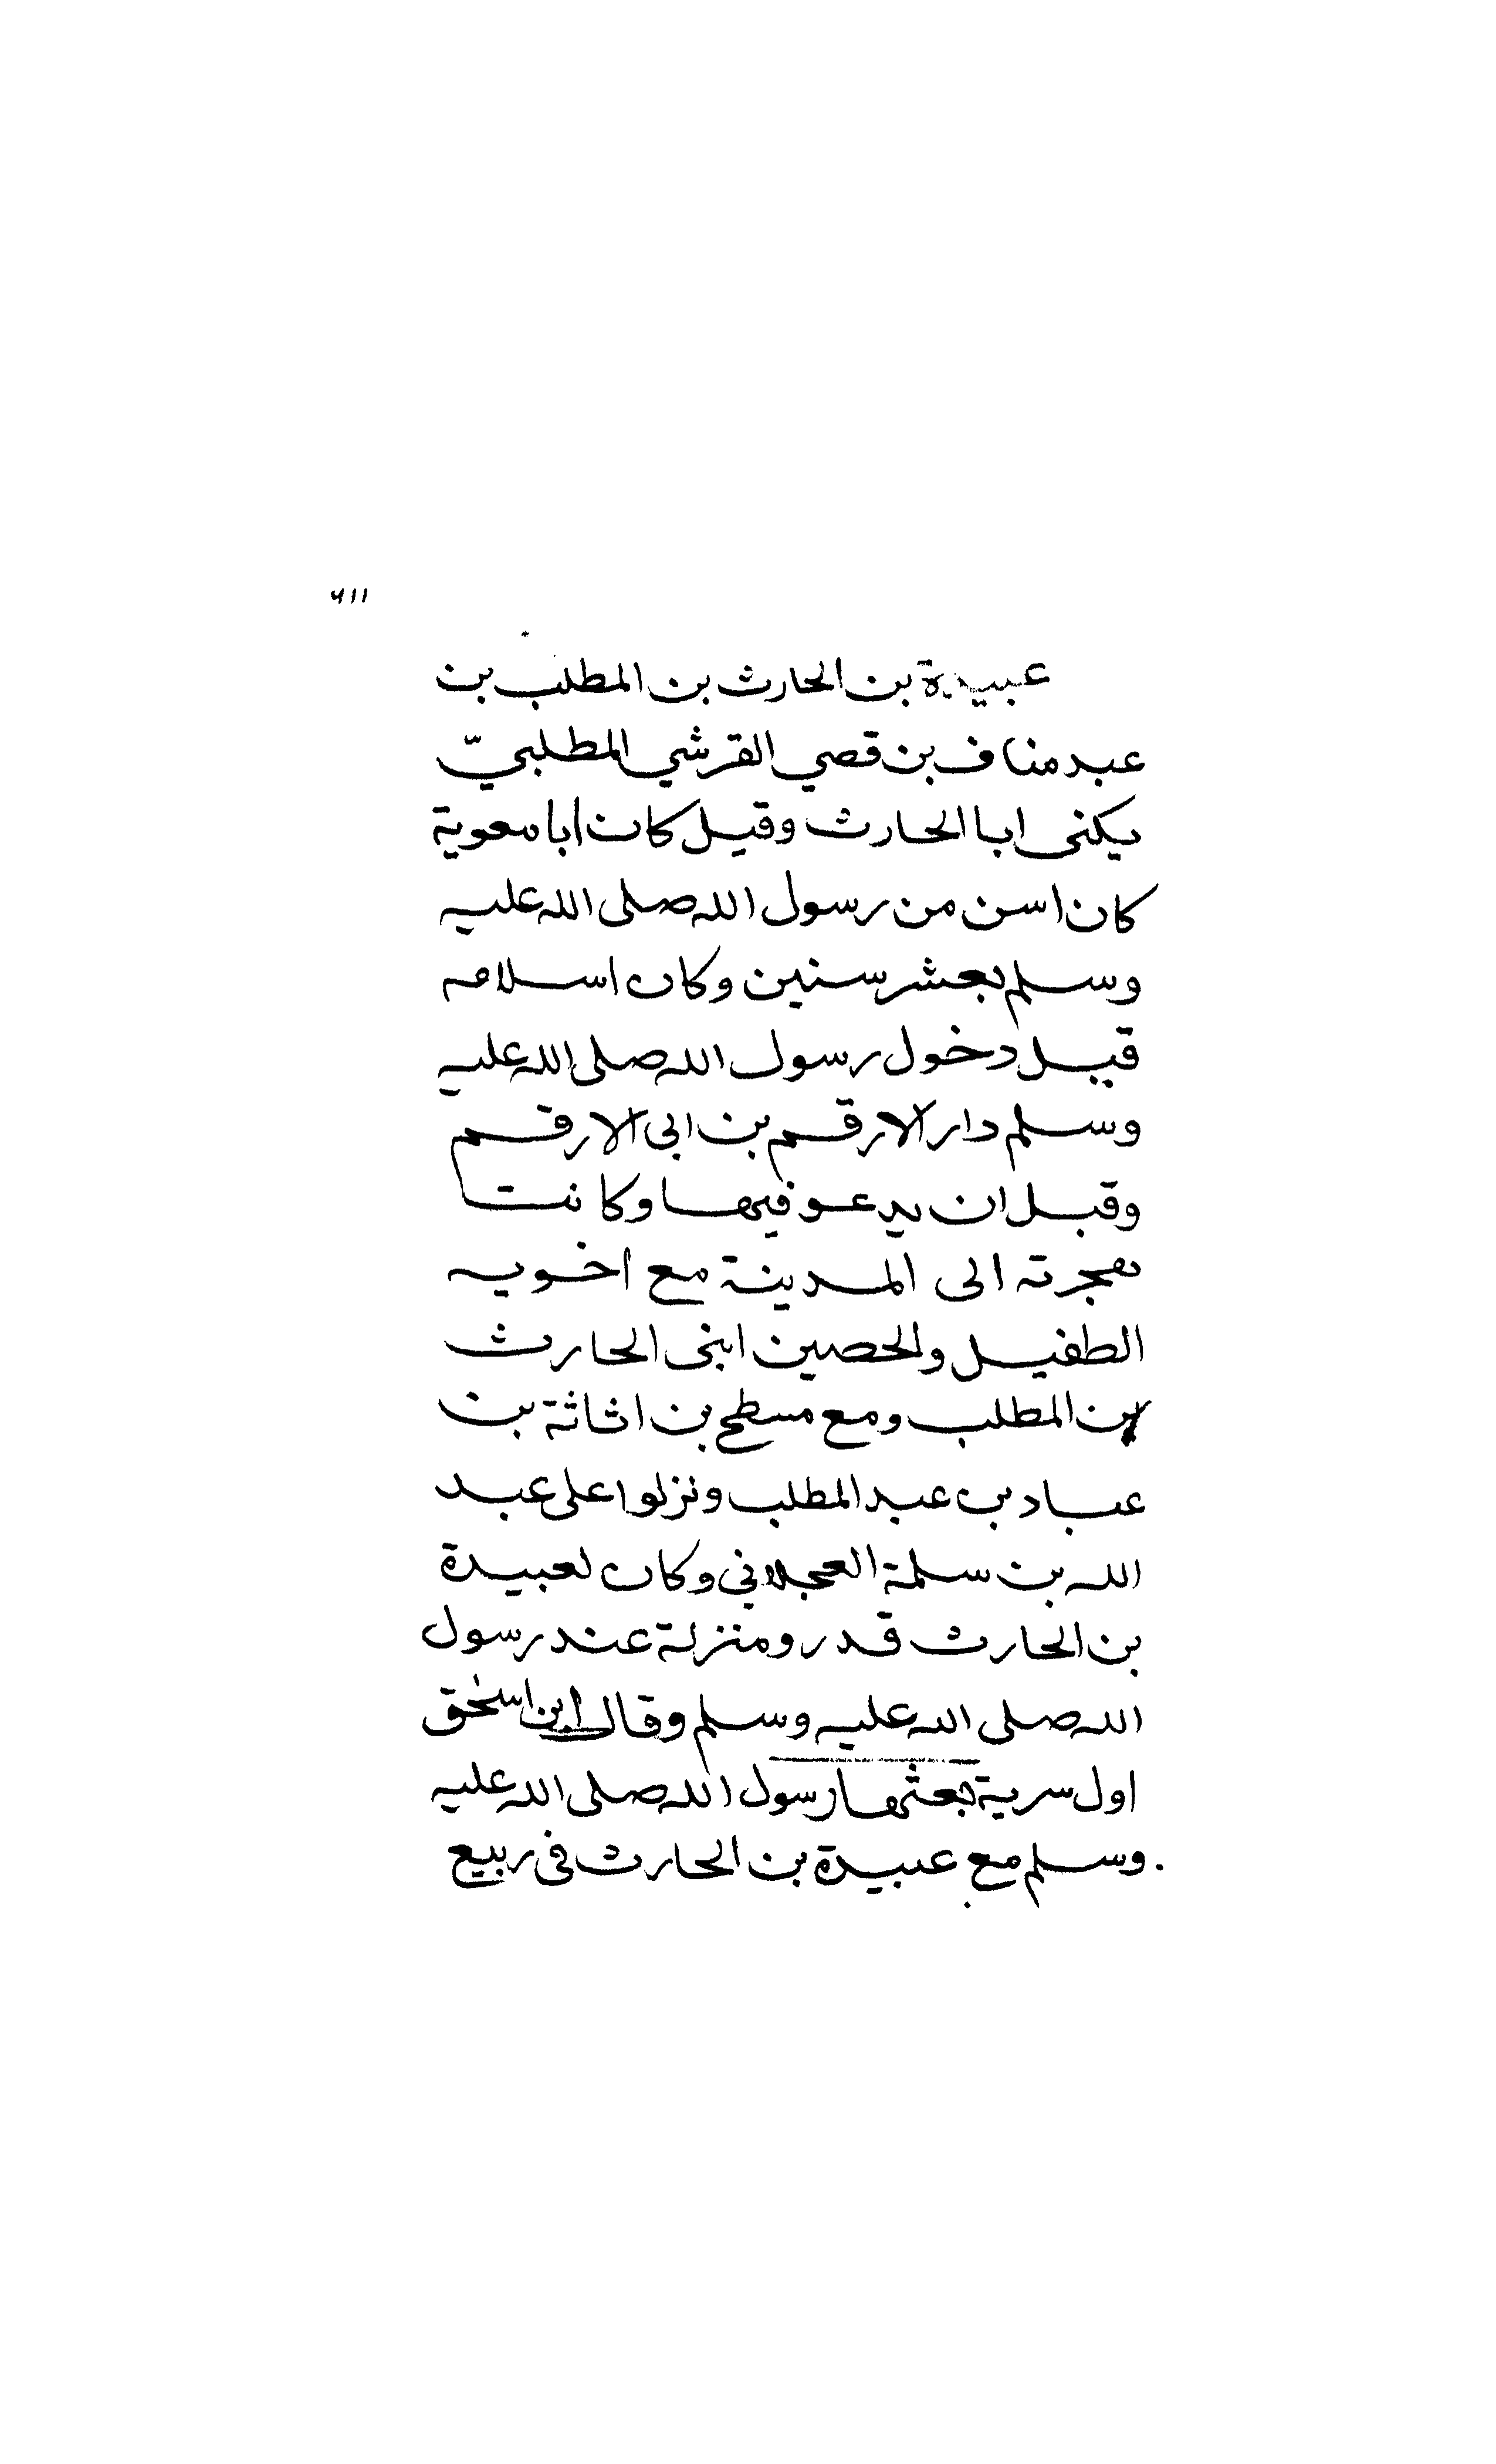 عبيدة بن الحارث بن المطلب بن
عبد مناف بن قصي القرشي المطلبيّ
يكنى ابا الحارث وقيل كان ابا معوية
كان اسن من رسول الله صلى الله عليه
وسلم بعشر سنين وكان اسلامه
قبل دخول رسول الله صلى الله عليه
وسلم دار الارقم بن ابى الارقم
وقبل ان يدعو فيها وكانت
هجرته الى المدينة مع اخويه
الطفيل والحصين ابنى الحارث
بن المطلب ومع مسطح بن اثاثة بن
عباد بن عبد المطلب ونزلوا على عبد
الله بن سلمة العجلاني وكان لعبيدة
بن الحارث قدر ومنزلة عند رسول
الله صلى الله عليه وسلم وقال ابن اسحق
اول سرية بعثها رسول الله صلى الله عليه
وسلم مع عبيدة بن الحارث في ربيع